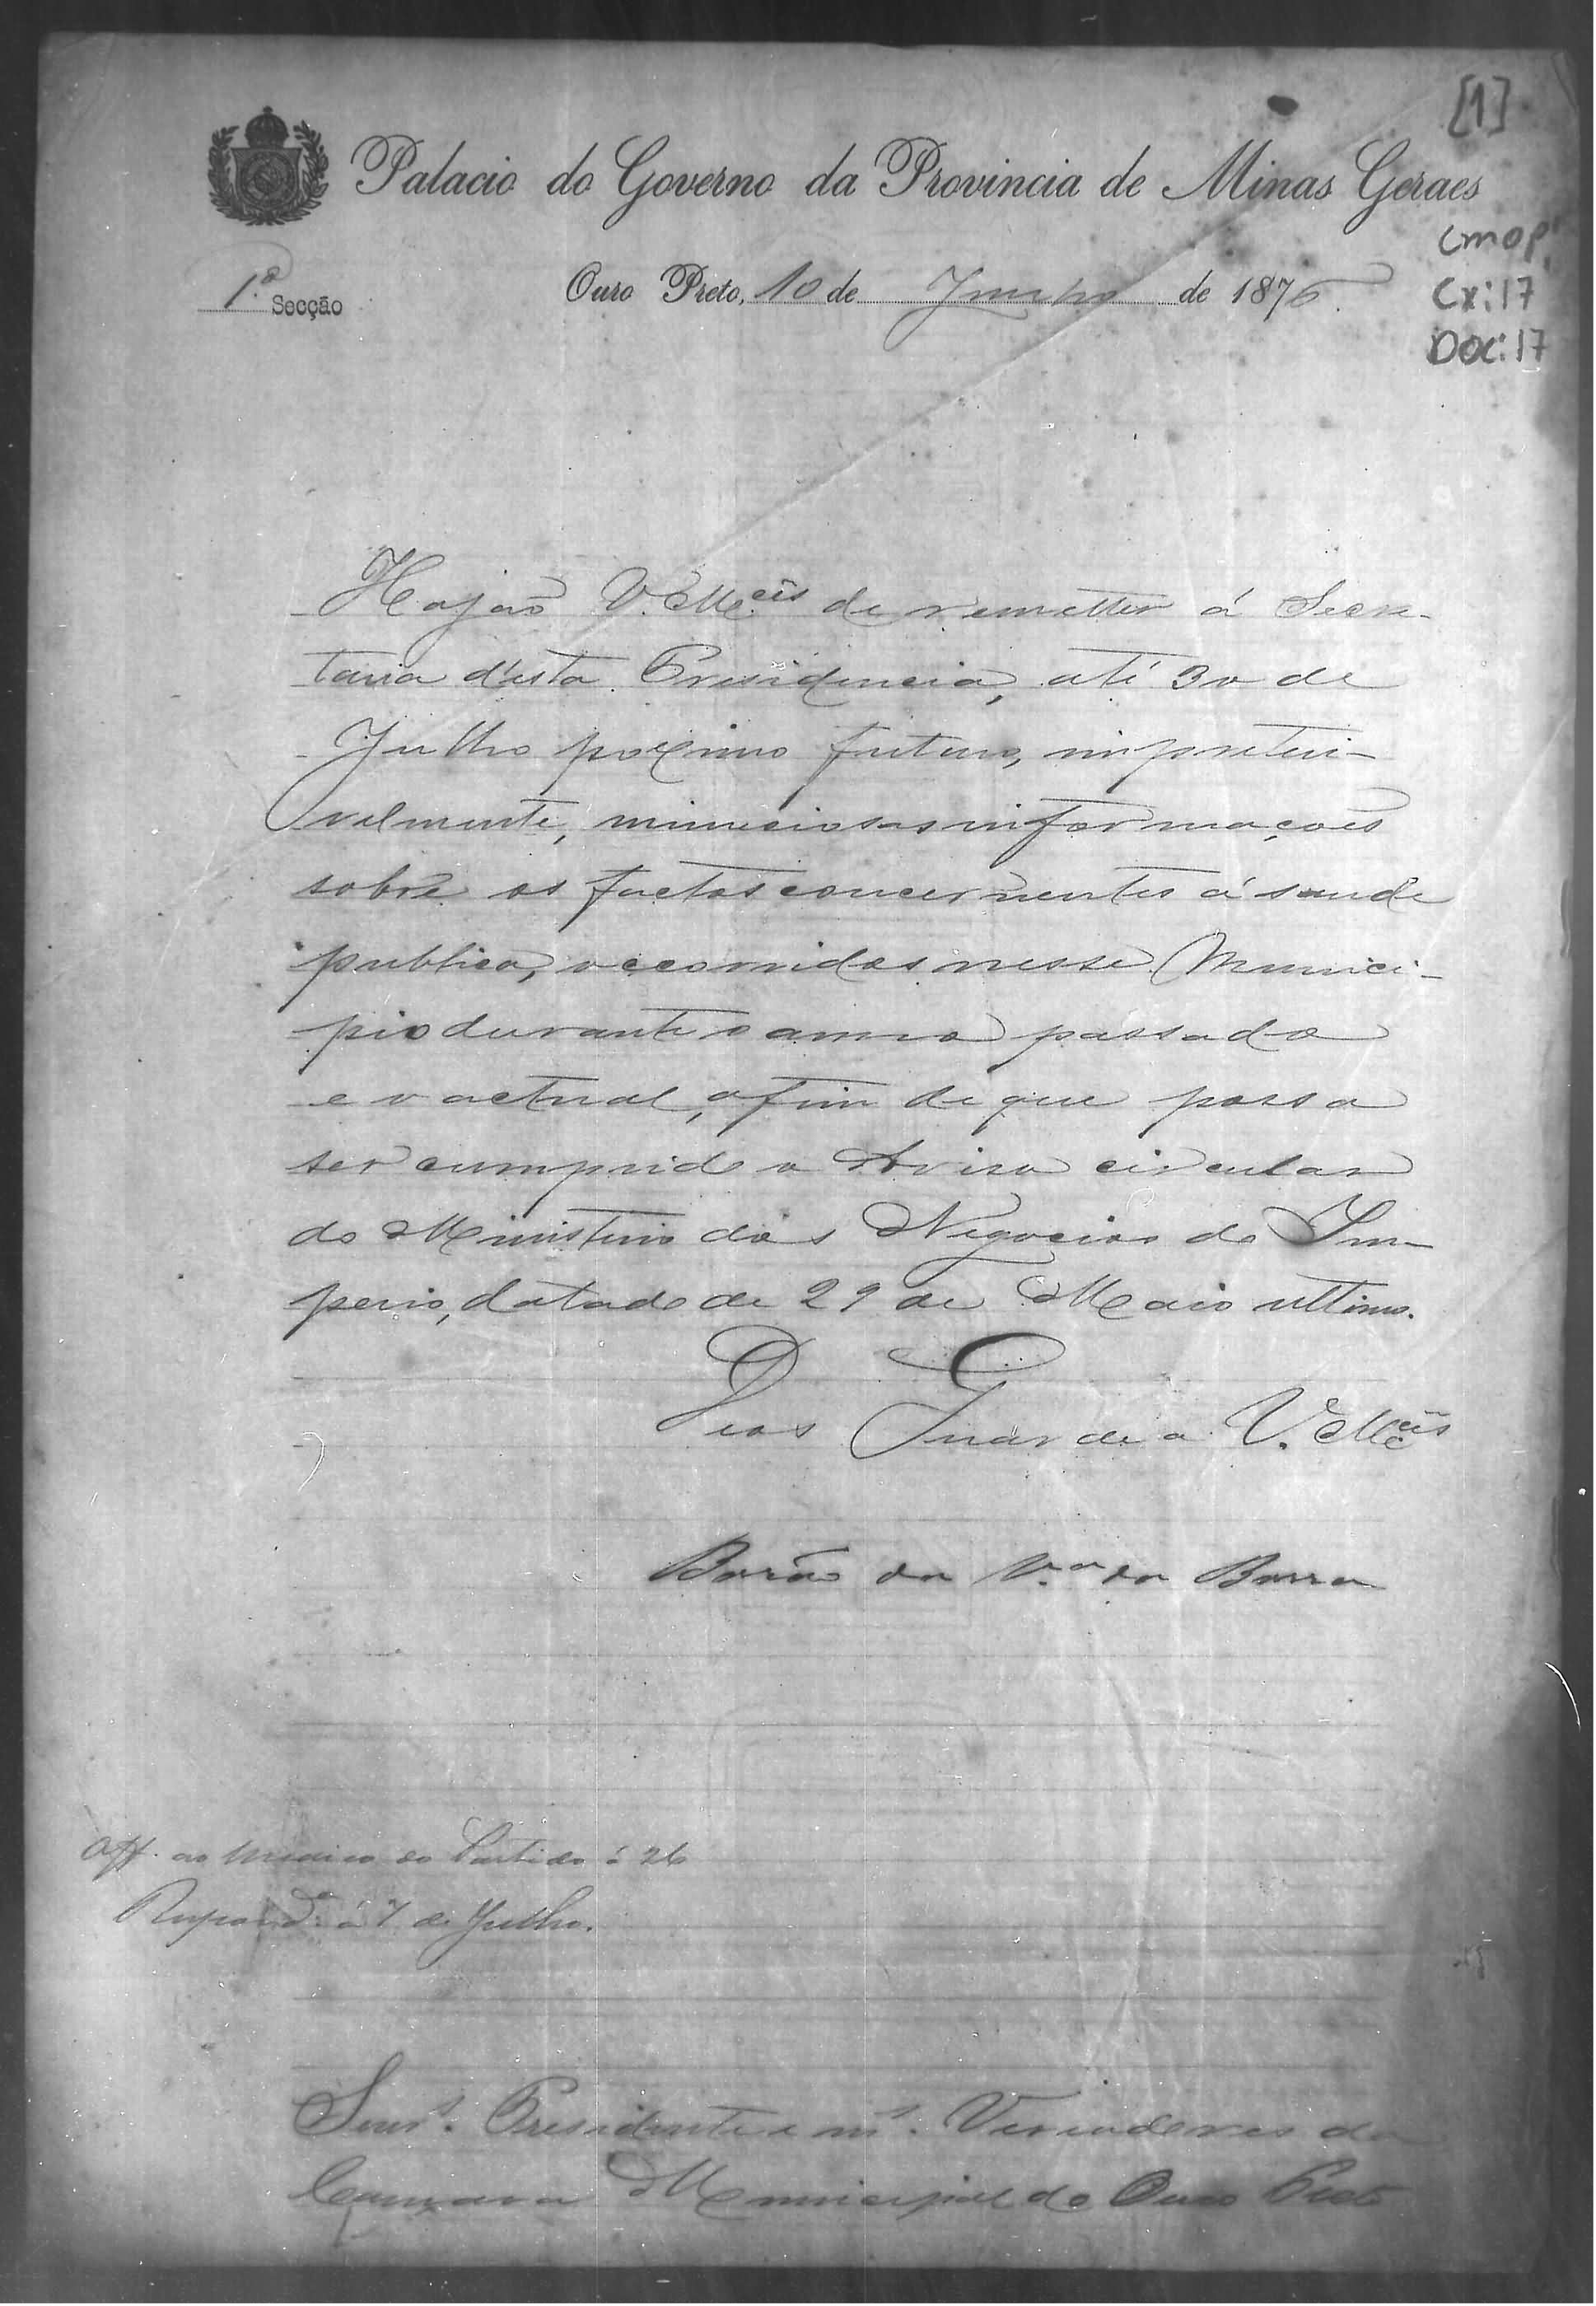 [1]
Palacio do Governo da Provincia de Minas Geraes
CMOP
1ª Secção
Ouro Preto, 10 de Junho de 1876.
Cx: 17
Doc: 17
Hajão V. Mcês de remetter á Secre-
taria d'esta Presidencia, até 30 de
Julho proximo futuro, impreteri-
velmente, minuciosas informações
sobre os factos concernentes á saude
publica, occorridos nesse Munici-
pio durante o anno passado
e o actual, afim de que possa
ser cumprido o Aviso circular
do Ministerio dos Negocios do Im-
perio, datado de 29 de Maio ultimo.
Deos Guarde a V. Mcês
Barão da Vª da Barra
Off. ao Medico do Partido á 26
Respondº á 7 de Julho.
Snrs. Presidente e ms. Vereadores da
Camara Municipal do Ouro Preto